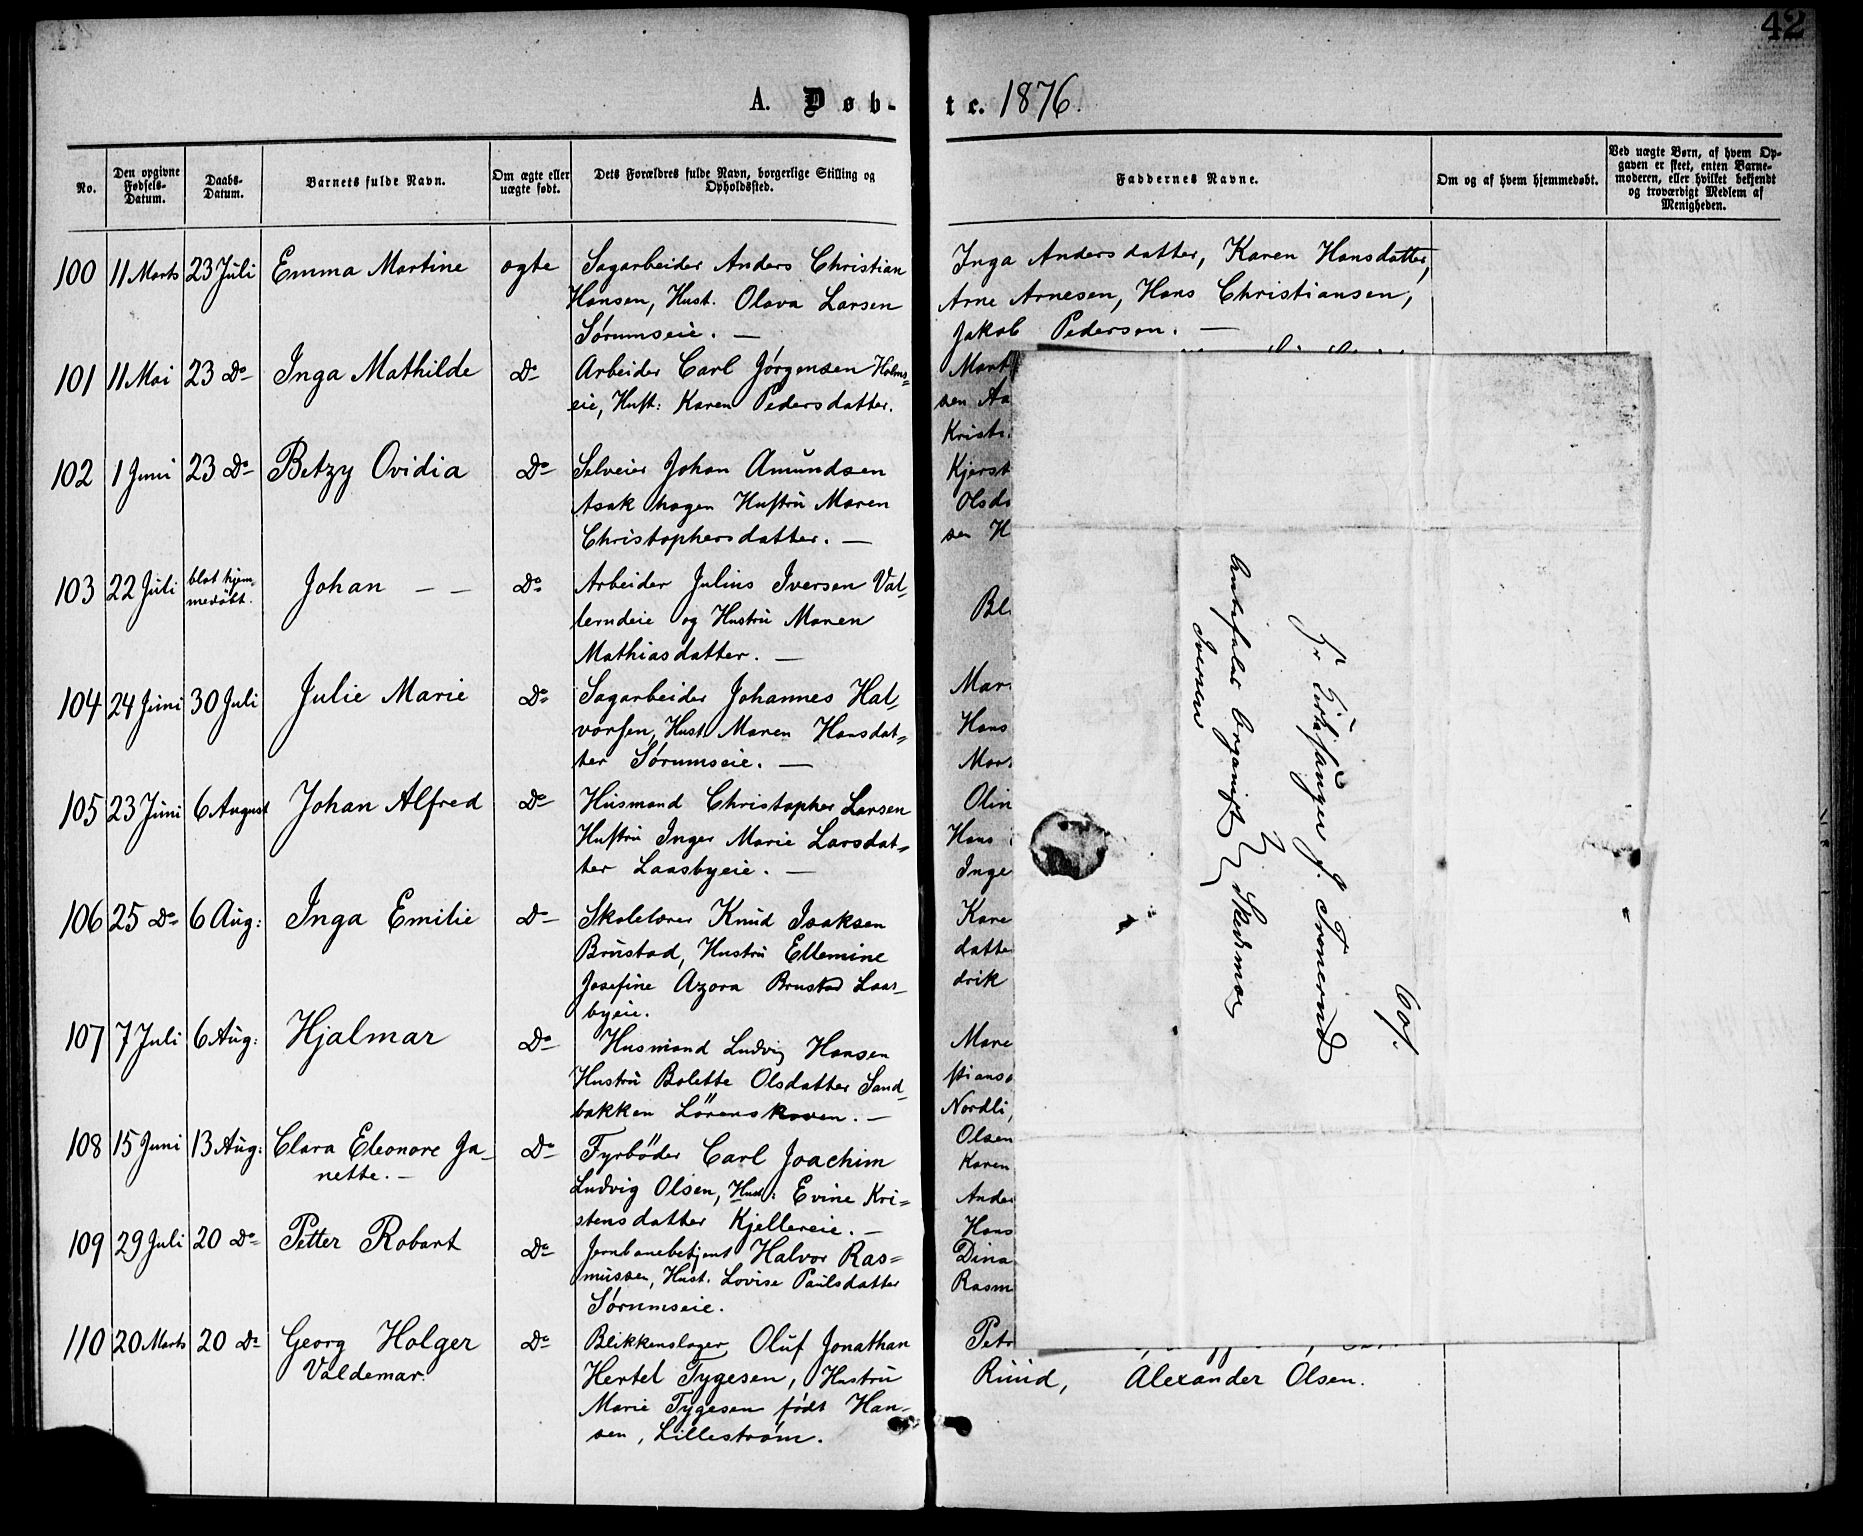 42
A. Døb-
te. 1876.
No.
Den opgivne Fødsels-Datum.
Daabs-Datum.
Barnets fulde Navn.
Om ægte eller uægte født.
Dets Forældres fulde Navn, borgerlige Stilling og Opholdssted.
Faddernes Navne.
Om og af hvem hjemmedøbt.
Ved uægte Børn, af hvem Op-
gaven er skeet, enten Barne-
moderen, eller hvilket bekjendt
og troværdigt Medlem af
Menigheden.
100 11 Marts 23 Juli Emma Martine ægte Sagarbeider Anders Christian
Hansen, Hust. Olava Larsen
Sørumseie. —
Inga Andersdatter, Karen Hansdatter,
Arne Arnesen, Hans Christiansen,
Jakob Pedersen. —
101 11 Mai 23 Do Inga Mathilde Do Arbeider Carl Jørgensen Holms=
eie, Hust: Karen Pedersdatter.
Mart
sen Aa
Krist
102 1 Juni 23 Do Betzy Ovidia Do Selveier Johan Amundsen
Asak hagen Hustru Maren
Christophersdatter. —
Kjerst
Olsda
sen H
103 22 Juli blot hjem-
medøbt. Johan — — Do Arbeider Julius Iversen Val-
lerndeie og Hustru Maren
Mathiasdatter. —
Bl
104 24 Juni 30 Juli Julie Marie Do Sagarbeider Johannes Hal-
vorsen, Hust. Maren Hansdat=
ter Sørumseie. —
Mar
Hans
Mar
105 23 Juni 6 August Johan Alfred Do Husmand Christopher Larsen
Hustru Inger Marie Larsdat=
ter Laasbyeie. —
Olin
Hans
Inge
106 25 Do 6 Aug: Inga Emilie Do Skolelærer Knud Isaksen
Brustad, Hustru Ellemine
Josefine Azora Brustad Laas-
byeie.
Kare
datte
drik
107 7 Juli 6 Aug: Hjalmar Do Husmand Ludvig Hansen
Hustru Bolette Olsdatter Sand-
bakken Lørenskoven. —
Mare
stians
Nordli,
Olsen
108 15 Juni 13 Aug: Clara Eleonore Ja-
nette. — Do Fyrbøder Carl Joachim
Ludvig Olsen, Hust: Evine Kri=
stensdatter Kjellereie. —
Karen
Ander
Hans
109 29 Juli 20 Do Petter Robart Do Jernbanebetjent Halvor Ras=
mussen, Hust. Lovise Paulsdatter
Sørumseie.
Dina
Rasm
110 20 Marts 20 Do Georg Holger
Valdemar. Do Blikkenslager Oluf Jonathan
Hertel Tygesen, Hustru
Marie Tygesen født Han-
sen, Lillestrøm.
Petr
Ruud, Alexander Olsen.
Hr Kirkesanger J. Tronerud
Anbefales Organist
Iversen
Skedsmoe